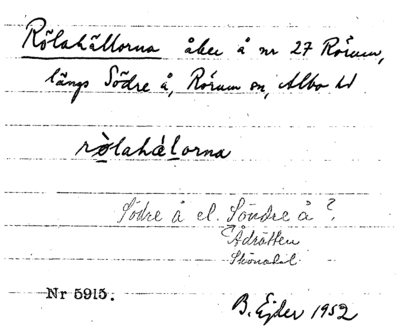 Rölahällorna åker å nr 27 Rörum,
längs Södre å, Rörum sn, Albo hd
rölahälorna
Södre å el. Söndre å?
Ådrätten
Nr 5915.
B. Ejder 1952